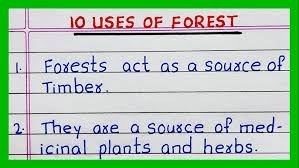 10 USES OF FOREST
1. Forests act as a source of
Timber.
2. They are a source of med-
icinal plants and herbs.